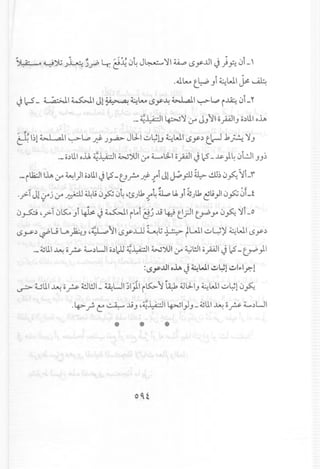 ١ـ أن يتوفر في الدعوى صفة الاستعجال بأن يُدفع بها ضررٌ يتعذر تلافيه مستقبلاً
بتلف محل المعاينة أو ضياع معالمه.
٢ـ أن يتقدم صاحب المصلحة بدعوى معاينة بصحيفة إلى المحكمة المختصة ـ كما في
هذه المادة والفقرة الأولى من لائحتها التنفيذية ـ.
ولا يشترط لسماع دعوى المعاينة وإثبات الحال حضور غير صاحب المصلحة إذا أُبلغ
ذوو الشأن بالموعد ـ كما في الفقرة الخامسة من اللائحة التنفيذية لهذه المادة ـ.
٣ـ ألا يكون ذلك حيلة للتوصل إلى أمر غير مشروع ـ كما في المادة الرابعة من هذا النظام ـ.
٤ـ أن تكون الوقائع طارئة أو لها صلة بأمر طارئ، بأن تكون قابلة للتغير من زمن إلى آخر.
٥ـ ألا يكون موضوع النزاع فيها قد رُفع أمام المحكمة في محلها أو مكان آخر، فتكون
دعوى المعاينة لإثبات المعالم حينئذٍ تابعة للدعوى الأصلية، وينظرها قاضي دعوى
الموضوع ـ كما في الفقرة الثانية من اللائحة التنفيذية للمادة السادسة عشرة بعد المائة ـ.
إجراءات إثبات المعاينة في هذه الدعوى:
يكون إثبات المعاينة والحالة طبقاً لأحكام المواد السابقة ـ الثالثة عشرة بعد المائة حتى
السادسة عشرة بعد المائة ـ ولوائحها التنفيذية، وقد سبقت مع شرحها.
٥٩٤